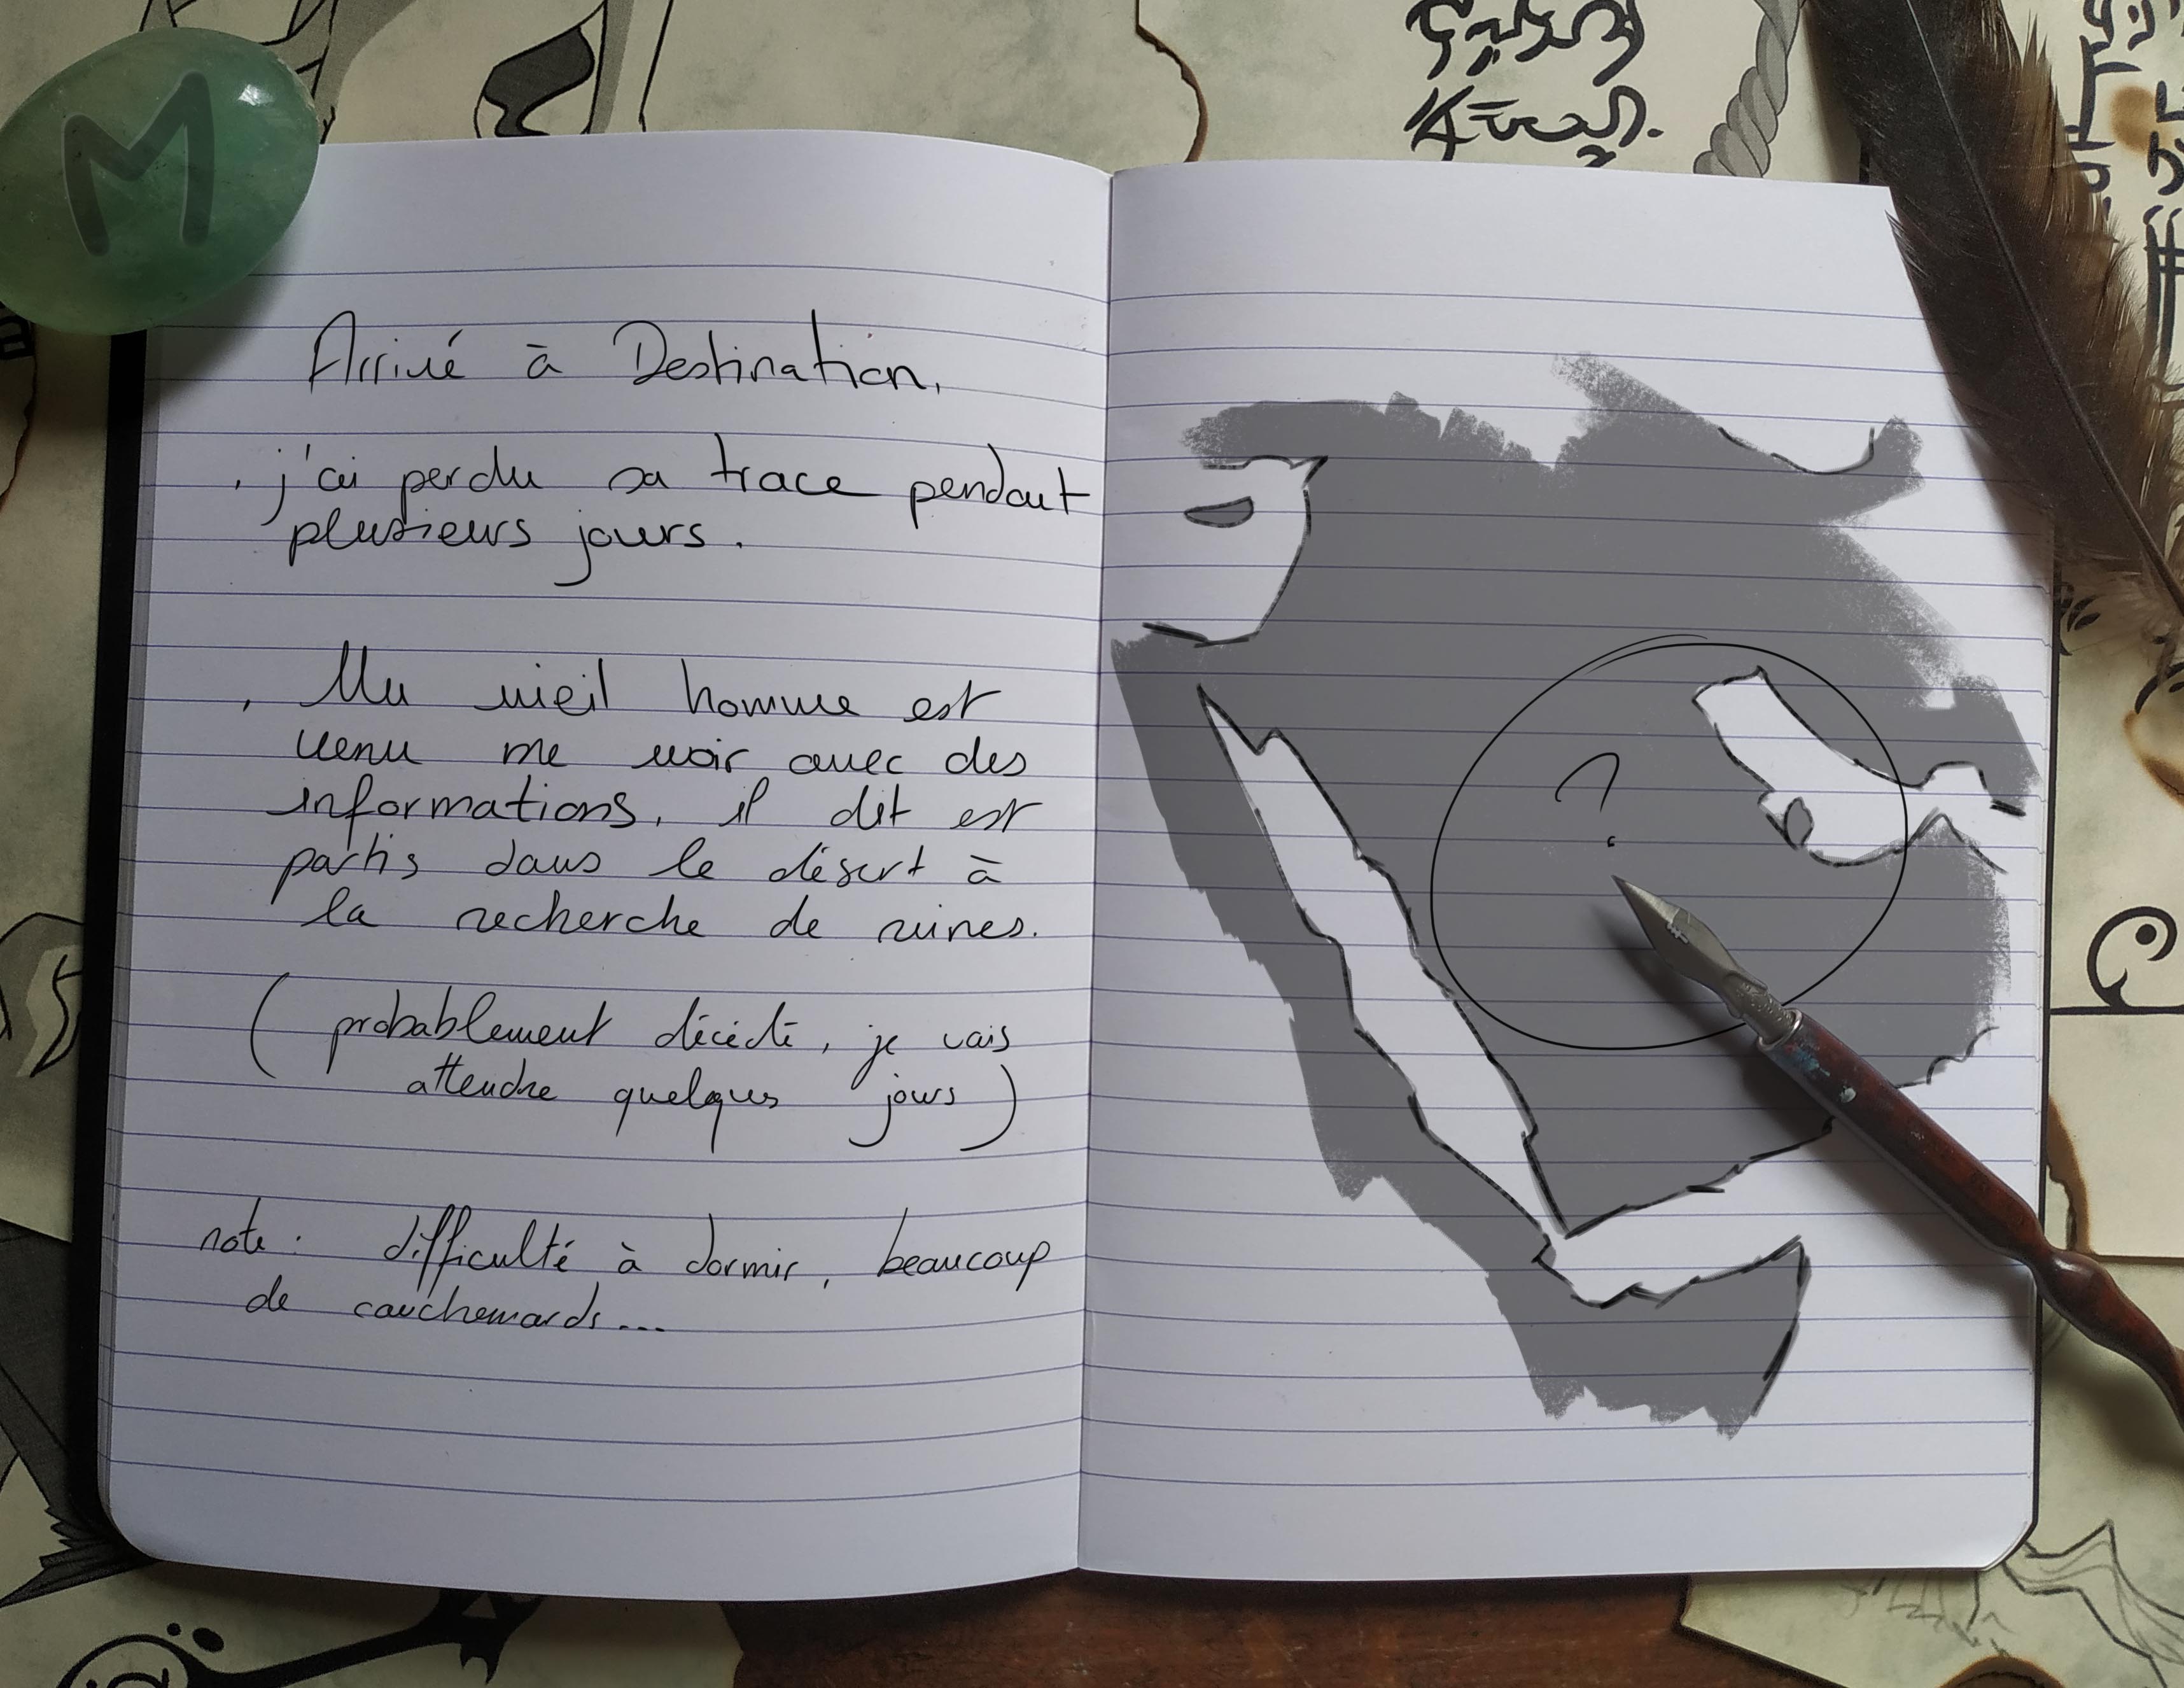 M
Arrivé à Destination,
. j'ai perdu sa trace pendant
plusieurs jours.
. Un vieil homme est
venu me voir avec des
informations, il dit est
partis dans le désert à
la recherche de ruines.
( probablement décédé, je vais
attendre quelques jours )
note : difficulté à dormir, beaucoup
de cauchemards...
?